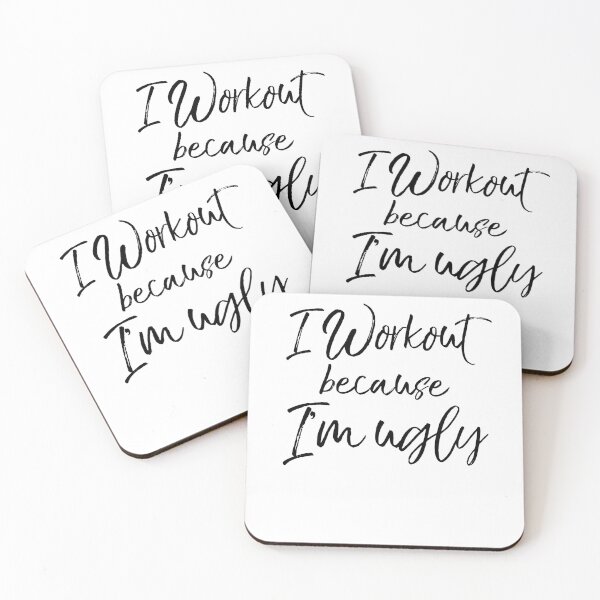 I Workout
because
I'm ugly
I Workout
because
I'm ugly
I Workout
because
I'm ugly
I Workout
because
I'm ugly